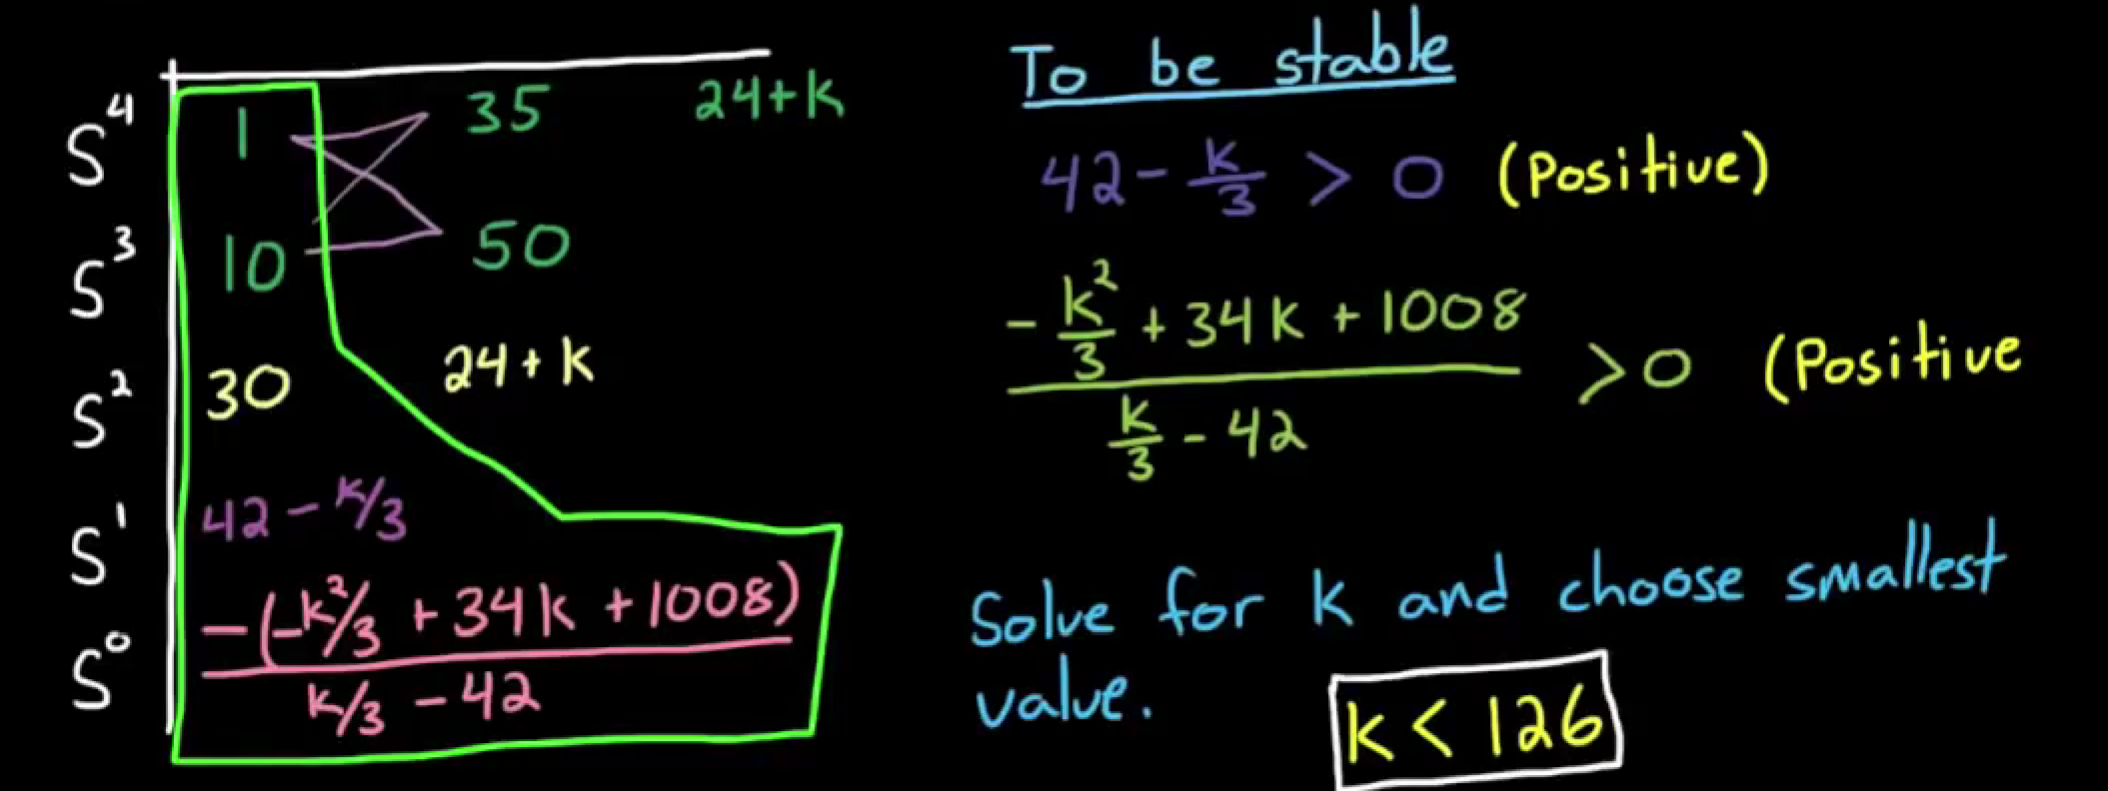 S⁴ 1 35 24+k
S³ 10 50
S² 30 24+k
S¹ 42-k/3
S⁰ -(-k²/3 +34k +1008)
k/3 -42
To be stable
42- k/3 > 0 (Positive)
- k²/3 + 34k + 1008
k/3 - 42
>0 (Positive
Solve for k and choose smallest
value.
k < 126